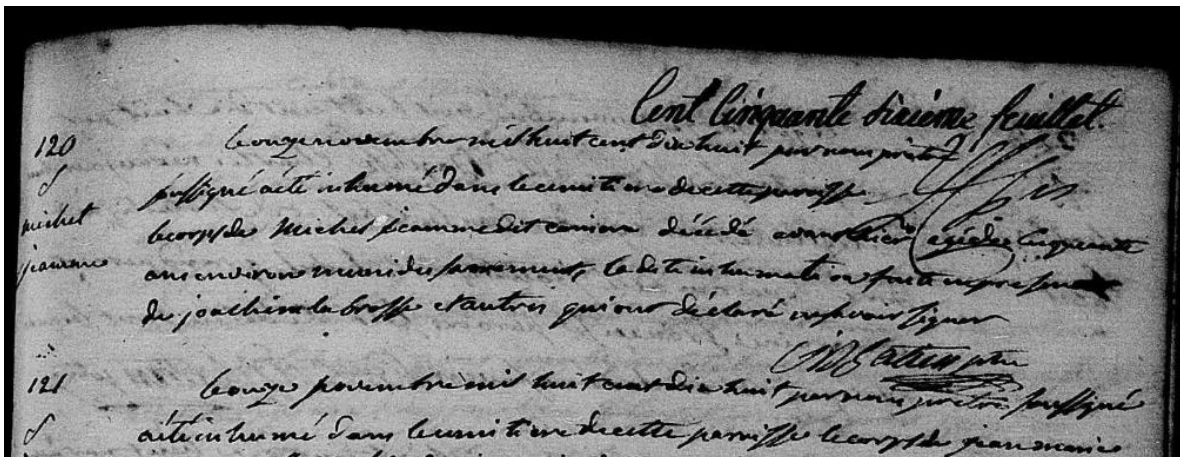 Cent Cinquante sixième feuillet.
120
Le onze novembre mil huit cent dix huit par nous prêtre
S
soussigné a été inhumé dans le cimitiere de cette paroisse
michel
le corps de Michel decedé avant hier agé de cinquante
ans environ muni du sacrement, la dite inhumation faite en presence
de joachim la brosse et autres qui ont déclaré ne savoir signer
ptre
121
Le onze novembre mil huit cent dix huit par nous pretre soussigné
S
a été inhumé dans le cimitiere de cette paroisse le corps de jean marie